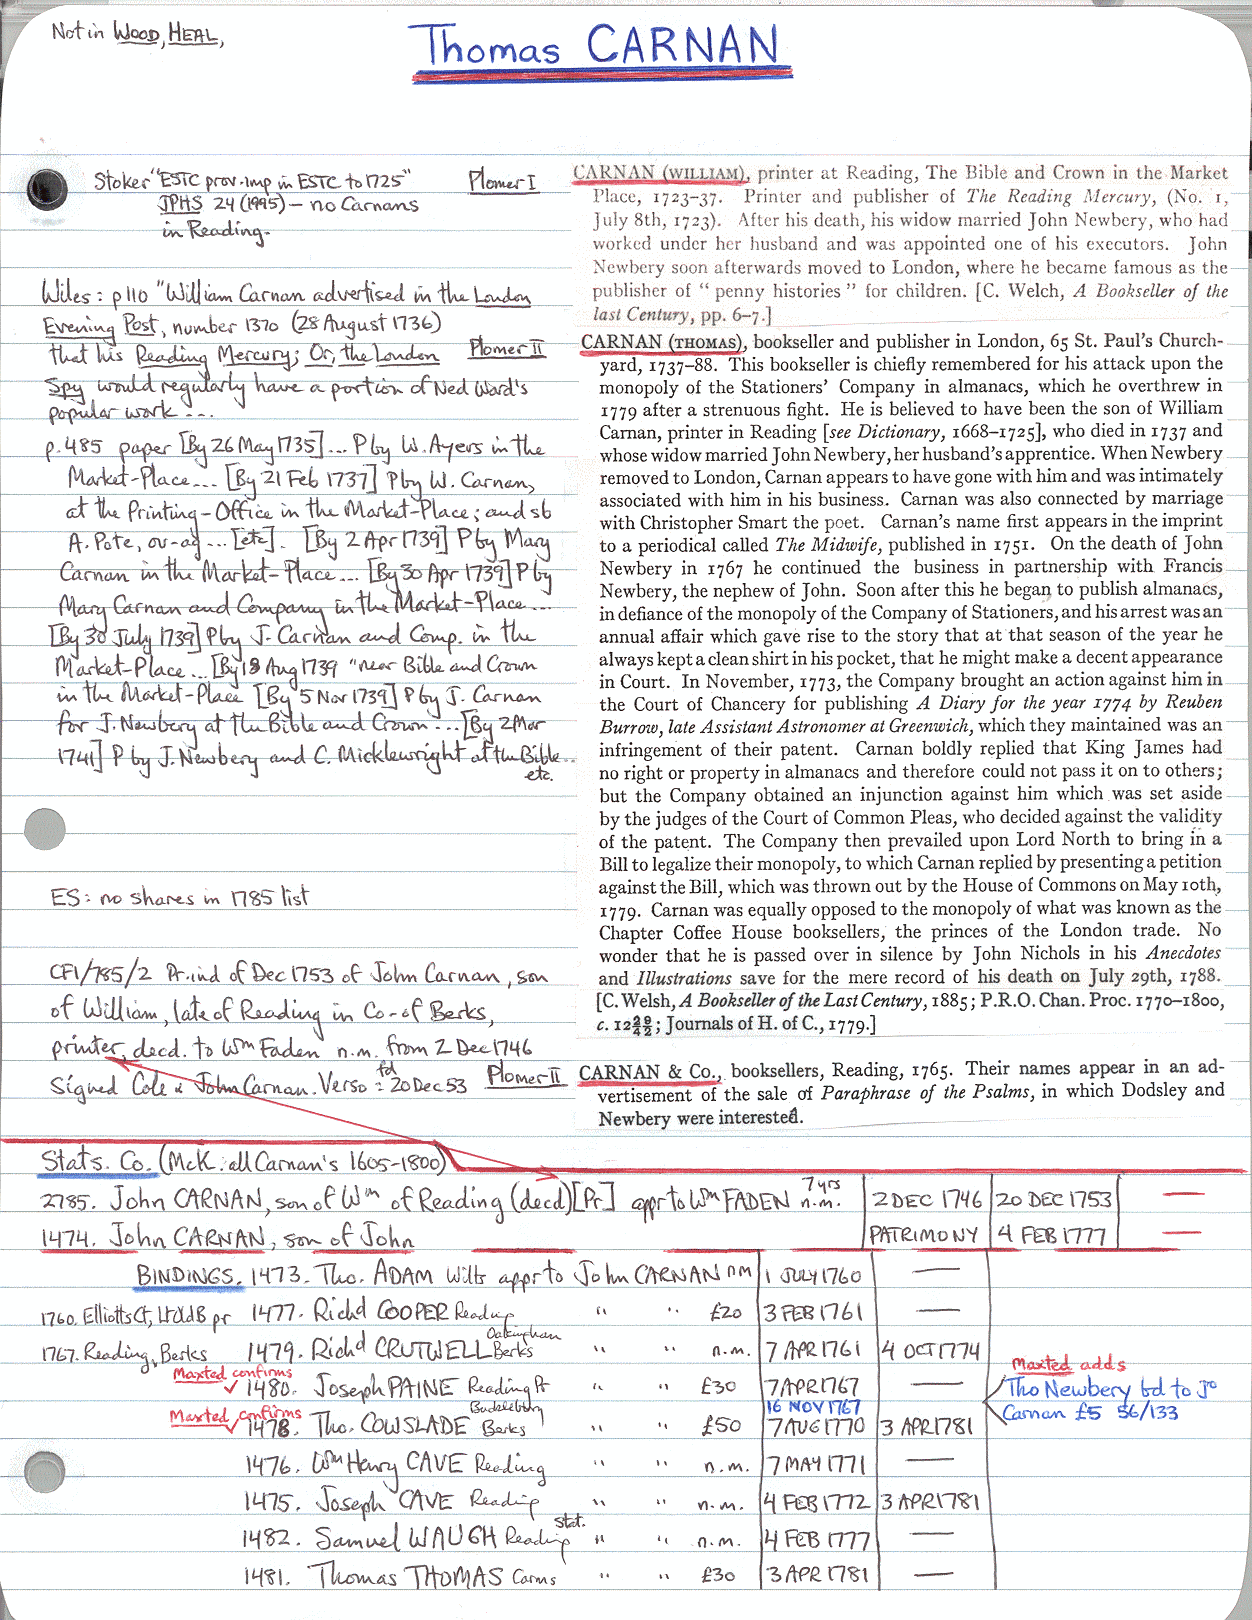 Not in WOOD, HEAL,
Thomas CARNAN
Stoker "ESTC prov. imp in ESTC to 1725"
JPHS 24 (1995) – no Carnans
in Reading.
Plomer I
CARNAN (WILLIAM), printer at Reading, The Bible and Crown in the Market
Place, 1723–37. Printer and publisher of The Reading Mercury, (No. 1,
July 8th, 1723). After his death, his widow married John Newbery, who had
worked under her husband and was appointed one of his executors. John
Newbery soon afterwards moved to London, where he became famous as the
publisher of "penny histories" for children. [C. Welch, A Bookseller of the
last Century, pp. 6–7.]
Wiles: p110 "William Carnan advertised in the London
Evening Post, number 1370 (28 August 1736)
that his Reading Mercury; Or, the London
Spy would regularly have a portion of Ned Ward's
popular work ...
p.485 paper [By 26 May 1735] ... P by W. Ayers in the
Market-Place ... [By 21 Feb 1737] P by W. Carnan,
at the Printing-Office in the Market-Place; and sb
A. Pote, ov-ag ... [etc]. [By 2 Apr 1739] P by Mary
Carnan in the Market-Place ... [By 30 Apr 1739] P by
Mary Carnan and Company in the Market-Place ...
[By 30 July 1739] P by J. Carnan and Comp. in the
Market-Place ... [By 18 Aug 1739 "near Bible and Crown
in the Market-Place [By 5 Nov 1739] P by J. Carnan
for J. Newbery at the Bible and Crown ... [By 2 Mar
1741] P by J. Newbery and C. Micklewright at the Bible ...
etc.
Plomer II
CARNAN (THOMAS), bookseller and publisher in London, 65 St. Paul's Church-
yard, 1737–88. This bookseller is chiefly remembered for his attack upon the
monopoly of the Stationers' Company in almanacs, which he overthrew in
1779 after a strenuous fight. He is believed to have been the son of William
Carnan, printer in Reading [see Dictionary, 1668–1725], who died in 1737 and
whose widow married John Newbery, her husband's apprentice. When Newbery
removed to London, Carnan appears to have gone with him and was intimately
associated with him in his business. Carnan was also connected by marriage
with Christopher Smart the poet. Carnan's name first appears in the imprint
to a periodical called The Midwife, published in 1751. On the death of John
Newbery in 1767 he continued the business in partnership with Francis
Newbery, the nephew of John. Soon after this he began to publish almanacs,
in defiance of the monopoly of the Company of Stationers, and his arrest was an
annual affair which gave rise to the story that at that season of the year he
always kept a clean shirt in his pocket, that he might make a decent appearance
in Court. In November, 1773, the Company brought an action against him in
the Court of Chancery for publishing A Diary for the year 1774 by Reuben
Burrow, late Assistant Astronomer at Greenwich, which they maintained was an
infringement of their patent. Carnan boldly replied that King James had
no right or property in almanacs and therefore could not pass it on to others;
but the Company obtained an injunction against him which was set aside
by the judges of the Court of Common Pleas, who decided against the validity
of the patent. The Company then prevailed upon Lord North to bring in a
Bill to legalize their monopoly, to which Carnan replied by presenting a petition
against the Bill, which was thrown out by the House of Commons on May 10th,
1779. Carnan was equally opposed to the monopoly of what was known as the
Chapter Coffee House booksellers, the princes of the London trade. No
wonder that he is passed over in silence by John Nichols in his Anecdotes
and Illustrations save for the mere record of his death on July 29th, 1788.
[C. Welsh, A Bookseller of the Last Century, 1885; P.R.O. Chan. Proc. 1770–1800,
Journals of H. of C., 1779.]
ES: no shares in 1785 list
CF1/785/2 Pr. ind of Dec 1753 of John Carnan, son
of William, late of Reading in Co. of Berks,
printer, decd. to Wm Faden n.m. from 2 Dec 1746
Signed Cole & John Carnan. Verso: fd 20 Dec 53
Plomer II
CARNAN & Co., booksellers, Reading, 1765. Their names appear in an ad-
vertisement of the sale of Paraphrase of the Psalms, in which Dodsley and
Newbery were interested.
Stats. Co. (McK. all Carnan's 1605–1800)
2785. John CARNAN, son of Wm of Reading (decd) [Pr] appr to Wm FADEN 7 yrs n.m. 2 DEC 1746 20 DEC 1753 —
1474. John CARNAN, son of John PATRIMONY 4 FEB 1777 —
BINDINGS. 1473. Tho. ADAM Wilts appr to John CARNAN nm 1 JULY 1760 —
1760. Elliotts Ct, Lt Old B pr 1477. Richd COOPER Reading " " £20 3 FEB 1761 —
1767. Reading, Berks 1479. Richd CRUTWELL Oakingham Berks " " n.m. 7 APR 1761 4 OCT 1774
Maxted confirms ✓ 1480. Joseph PAINE Reading Pr " " £30 7 APR 1767 —
Maxted adds
Tho Newbery bd to Jo
Carnan £5 56/133
16 NOV 1767
Maxted confirms ✓ 1478. Tho. COWSLADE Bucklebury Berks " " £50 7 AUG 1770 3 APR 1781
1476. Wm Henry CAVE Reading " " n.m. 7 MAY 1771 —
1475. Joseph CAVE Reading " " n.m. 4 FEB 1772 3 APR 1781
1482. Samuel WAUGH Reading stat. " " n.m. 4 FEB 1777 —
1481. Thomas THOMAS Carms " " £30 3 APR 1781 —